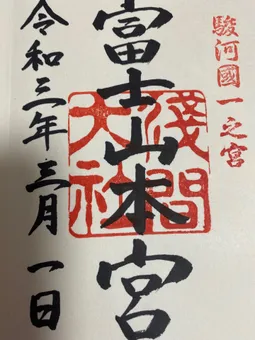 駿河國一之宮
富士山本宮
淺間大社
令和三年三月一日